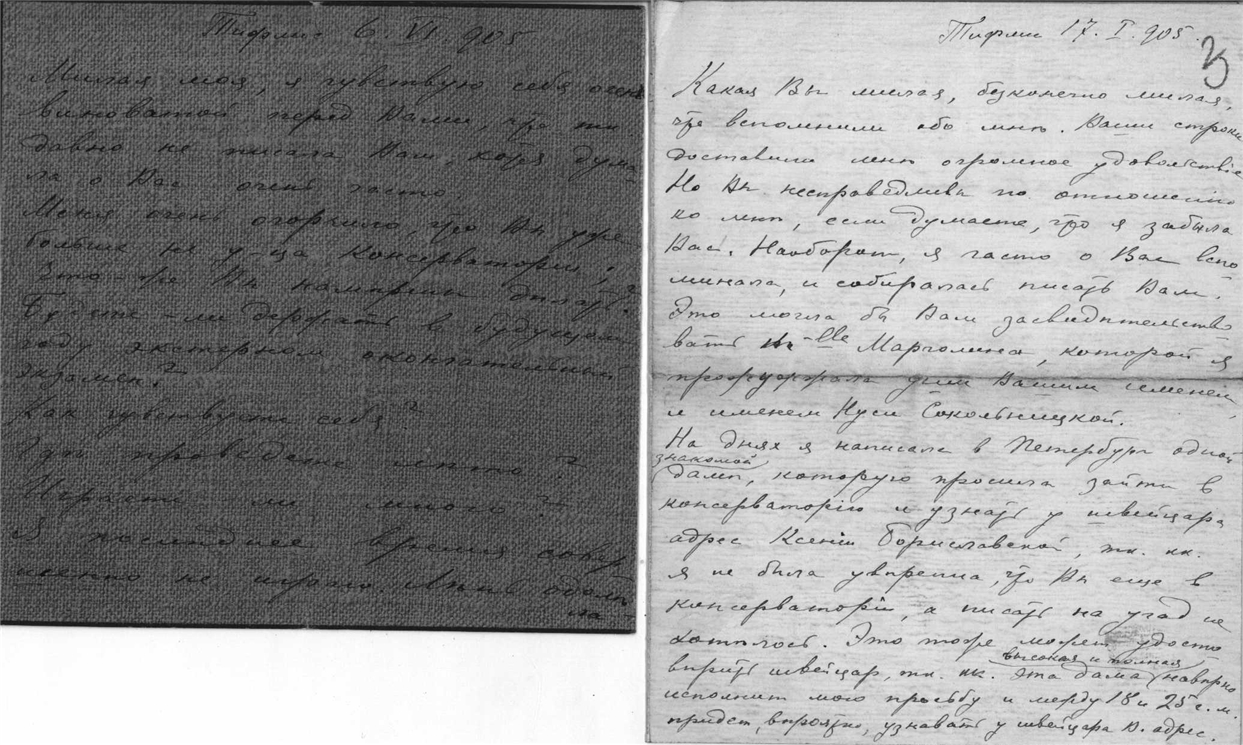 Тифлис 6 VI 905
Милая моя, я чувствую себя очень
виноватой перед Вами, что так
давно не писала Вам, хотя дума-
ла о Вас очень часто
Меня очень огорчило, что Вы уже
больше не у-ца Консерваторіи;
Что-же Вы намѣрены дѣлать?
Будете-ли держать в будущем
году экстерном окончательный
экзамен?
Как чувствуете себя?
Гдѣ проведете лѣто?
Играете ли много?
Я последнее время совер
шенно не играю. Лень одолѣ
ла
Тифлис 17. I. 905.
Какая Вы милая, безконечно милая,
что вспомнили обо мнѣ. Ваши строки
доставили мнѣ огромное удовольствіе
Но Вы несправедливы по отношенію
ко мнѣ, если думаете, что я забыла
Вас. Наоборот, я часто о Вас вспо
минала, и собиралась писать Вам.
Это могла бы Вам засвидѣтельство
вать M-lle Марголина, которой я
прожужжала уши Вашим именем,
и именем Нуси Сокольницкой.
На днях я написала в Петербург одной
знакомой
дамѣ, которую просила зайти в
консерваторію и узнать у швейцара
адрес Ксеніи Бориславской, тк. кк.
я не была увѣрена, что Вы еще в
консерваторіи, а писать на угад не
хотѣлось. Это тоже может удосто
высокая и полная
вѣрить швейцар, тк. кк. эта дама навѣрно
исполнит мою просьбу и между 18 и 25 с. м.
придет, вѣроятно, узнавать у швейцара В. адрес.